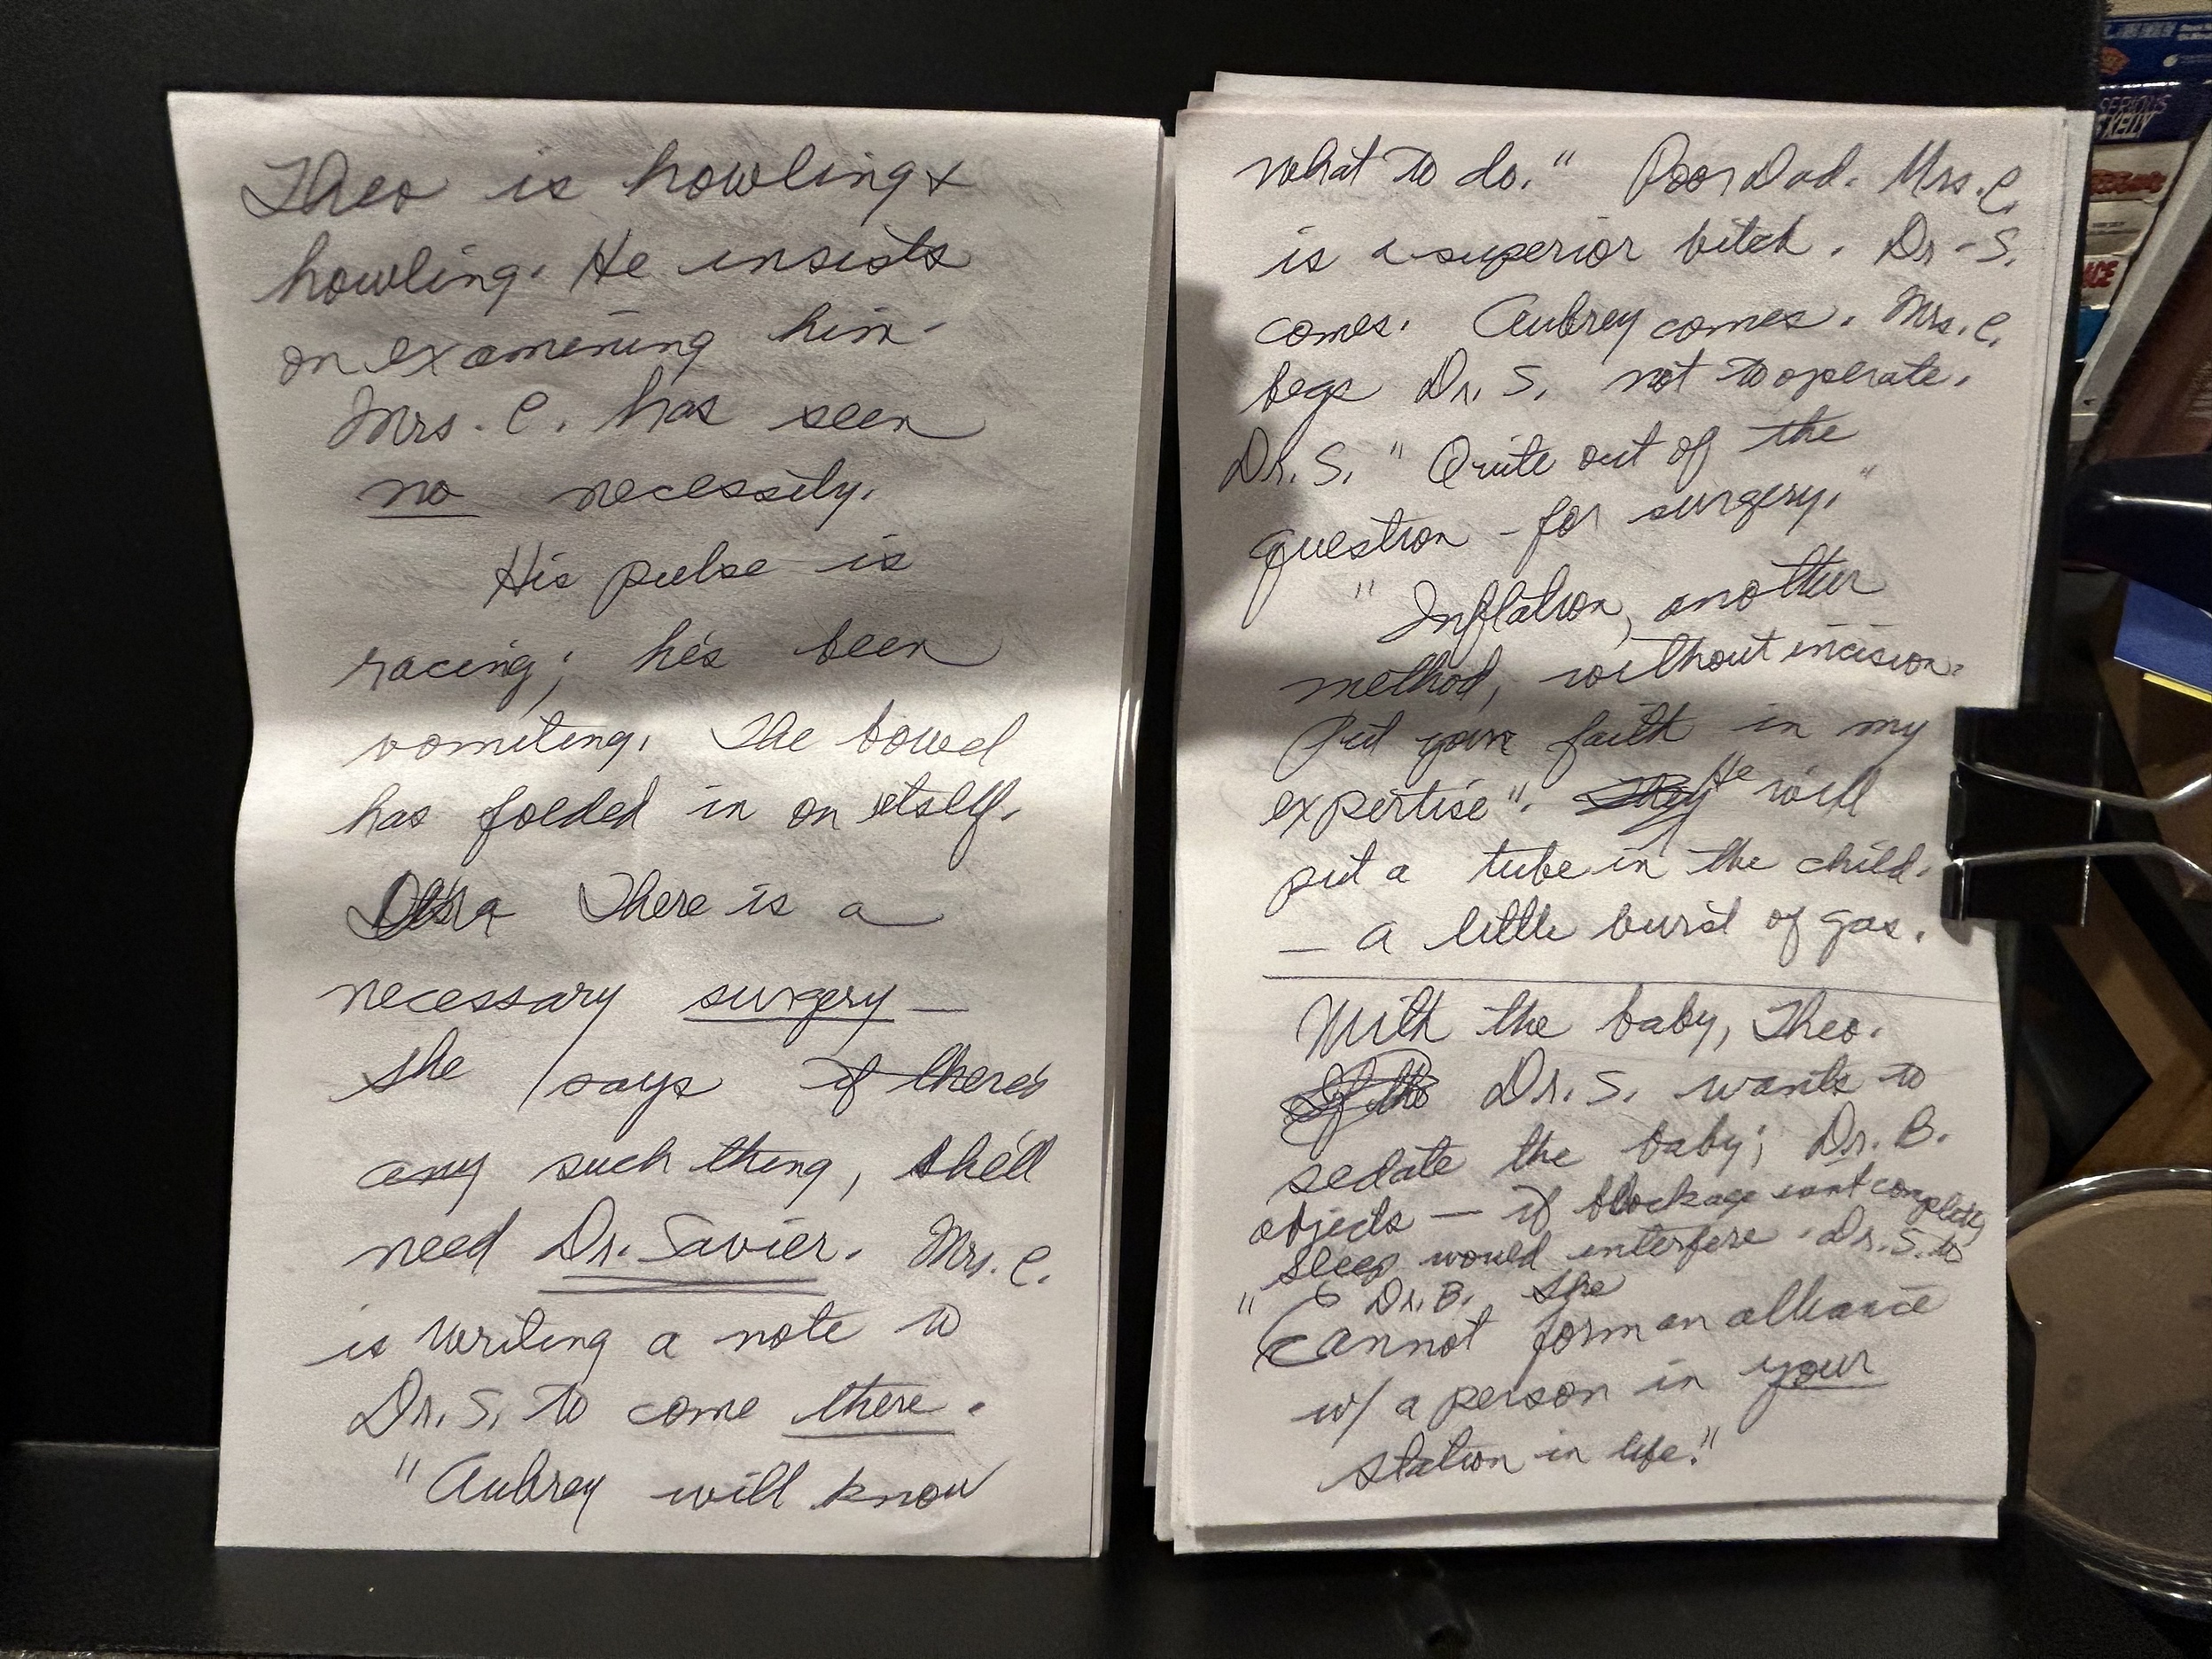 Theo is howling &
howling. He insists
on examining him.
Mrs. C. has seen
no necessity.
His pulse is
racing; he's been
vomiting. The bowel
has folded in on itself.
There is a
necessary surgery —
she says if there's
any such thing, she'll
need Dr. Savier. Mrs. C.
is writing a note to
Dr. S. to come there.
"Aubrey will know
what to do." Poor Dad. Mrs. C.
is a superior bitch. Dr. S.
comes. Aubrey comes. Mrs. C.
begs Dr. S. not to operate.
Dr. S. "Quite out of the
question - for surgery."
"Inflation, another
method, without incision.
Put your faith in my
expertise". They He will
put a tube in the child.
— a little burst of gas.
With the baby, Theo.
If the Dr. S. wants to
sedate the baby; Dr. B.
objects — if blockage isn't complete,
sleep would interfere. Dr. S. to
Dr. B. she
"Cannot form an alliance
w/ a person in your
station in life."
SERIOUS
KELLY